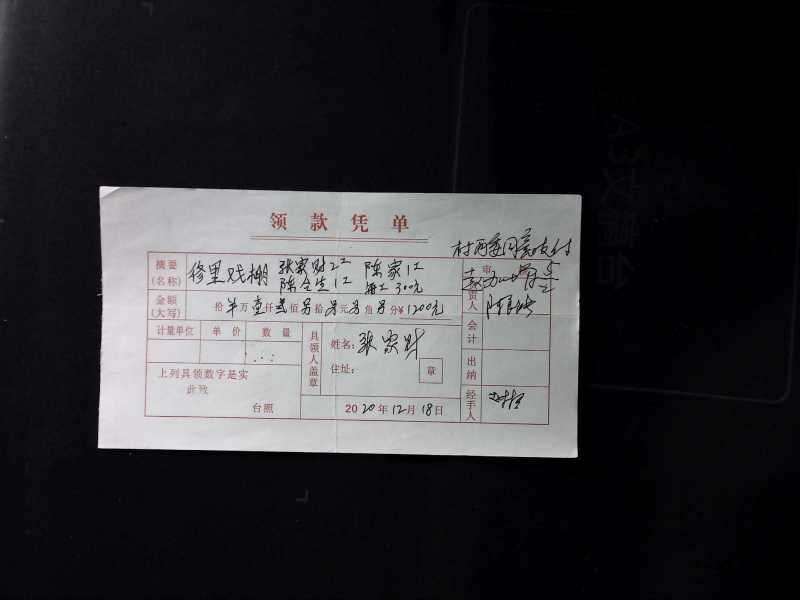 领款凭单
村两委同意支付
摘要(名称) 修里戏棚 张家财2工 陈家1工
陈全生1工 每工300元
金额(大写) 拾 万 壹仟贰佰另拾另元另角另分¥1200元
计量单位 单价 数量
具领人盖章
姓名: 张家财
住址:
章
上列具领数字是实
此致
台照
2020年12月18日
审
责人
会计
出纳
经手人
A3文精台